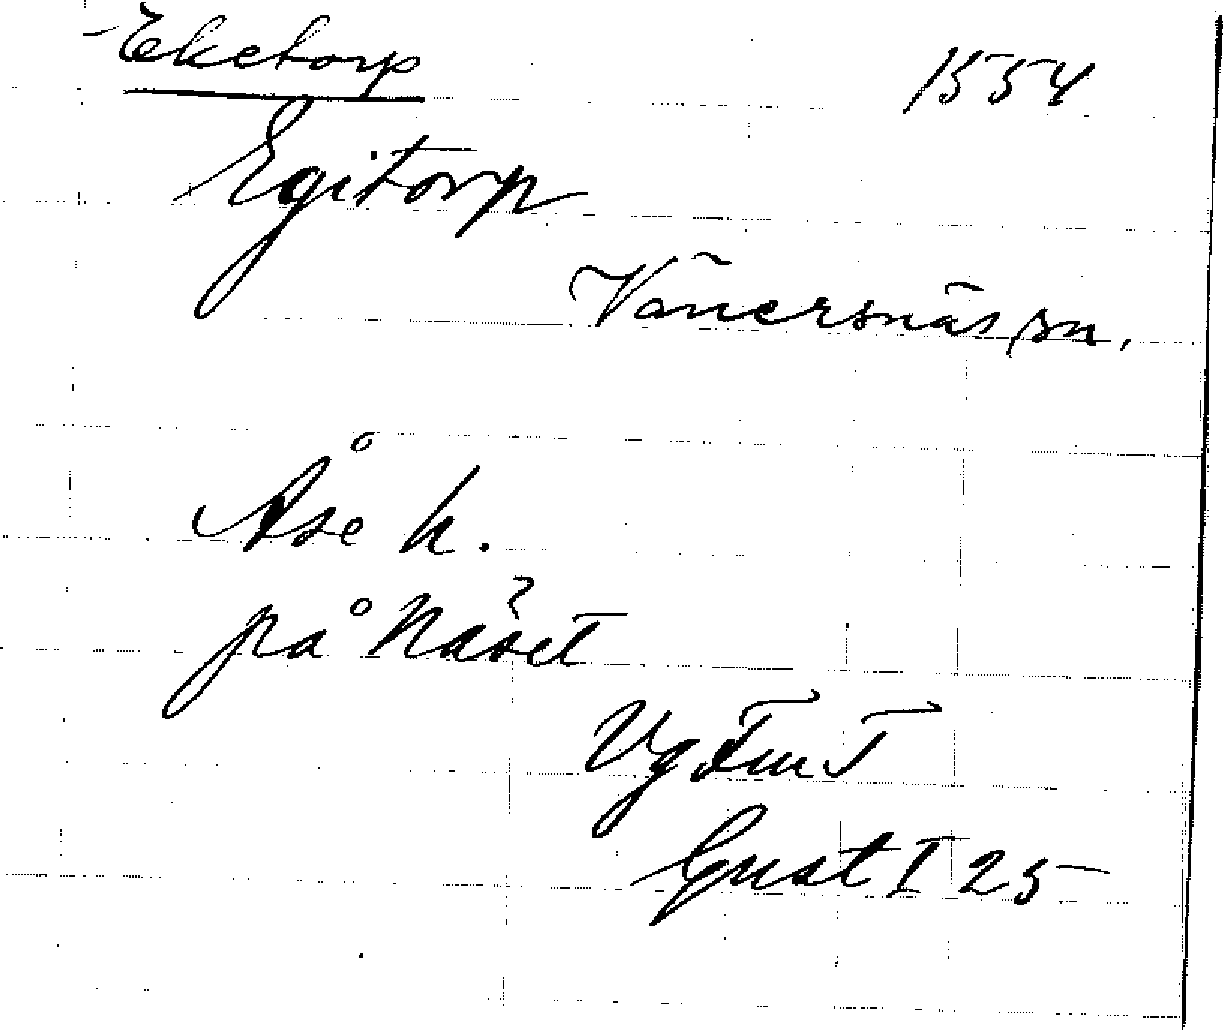 Eketorp 1554
Egitorp
Vänersnäs sn.
Åse h.
på Näset
Vg FmT
Gust I 25